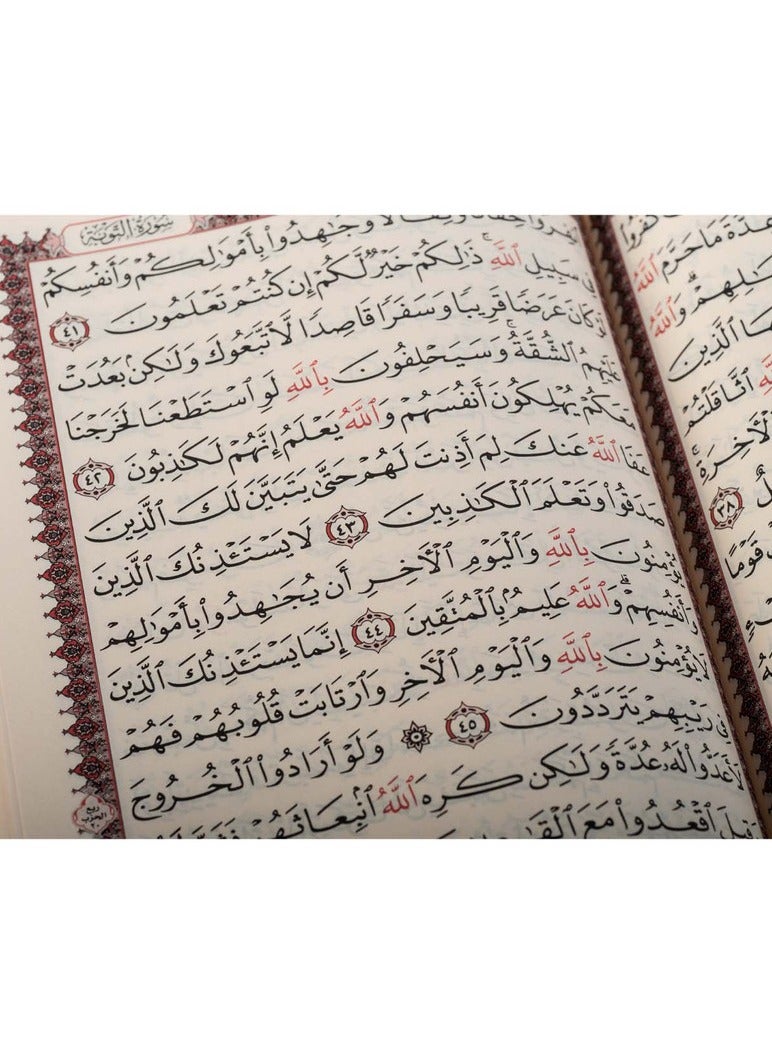 سورة التوبة
وَجَٰهِدُوا۟ بِأَمْوَٰلِكُمْ وَأَنفُسِكُمْ
فِى سَبِيلِ ٱللَّهِ ۚ ذَٰلِكُمْ خَيْرٌ لَّكُمْ إِن كُنتُمْ تَعْلَمُونَ ٤١
لَوْ كَانَ عَرَضًا قَرِيبًا وَسَفَرًا قَاصِدًا لَّٱتَّبَعُوكَ وَلَٰكِنۢ بَعُدَتْ
عَلَيْهِمُ ٱلشُّقَّةُ ۚ وَسَيَحْلِفُونَ بِٱللَّهِ لَوِ ٱسْتَطَعْنَا لَخَرَجْنَا
مَعَكُمْ يُهْلِكُونَ أَنفُسَهُمْ وَٱللَّهُ يَعْلَمُ إِنَّهُمْ لَكَٰذِبُونَ ٤٢
عَفَا ٱللَّهُ عَنكَ لِمَ أَذِنتَ لَهُمْ حَتَّىٰ يَتَبَيَّنَ لَكَ ٱلَّذِينَ
صَدَقُوا۟ وَتَعْلَمَ ٱلْكَٰذِبِينَ ٤٣ لَا يَسْتَـْٔذِنُكَ ٱلَّذِينَ
يُؤْمِنُونَ بِٱللَّهِ وَٱلْيَوْمِ ٱلْـَٔاخِرِ أَن يُجَٰهِدُوا۟ بِأَمْوَٰلِهِمْ
وَأَنفُسِهِمْ ۗ وَٱللَّهُ عَلِيمٌۢ بِٱلْمُتَّقِينَ ٤٤ إِنَّمَا يَسْتَـْٔذِنُكَ ٱلَّذِينَ
لَا يُؤْمِنُونَ بِٱللَّهِ وَٱلْيَوْمِ ٱلْـَٔاخِرِ وَٱرْتَابَتْ قُلُوبُهُمْ فَهُمْ
فِى رَيْبِهِمْ يَتَرَدَّدُونَ ٤٥ ۞ وَلَوْ أَرَادُوا۟ ٱلْخُرُوجَ
لَأَعَدُّوا۟ لَهُۥ عُدَّةً وَلَٰكِن كَرِهَ ٱللَّهُ ٱنۢبِعَاثَهُمْ
وَقِيلَ ٱقْعُدُوا۟ مَعَ
ربع
الحزب
٢٠
عِدَّةَ مَا حَرَّمَ ٱللَّهُ
وَٱللَّهُ
ٱلَّذِينَ
ٱثَّاقَلْتُمْ
ٱلْـَٔاخِرَةِ ۚ
٣٨
قَوْمًا